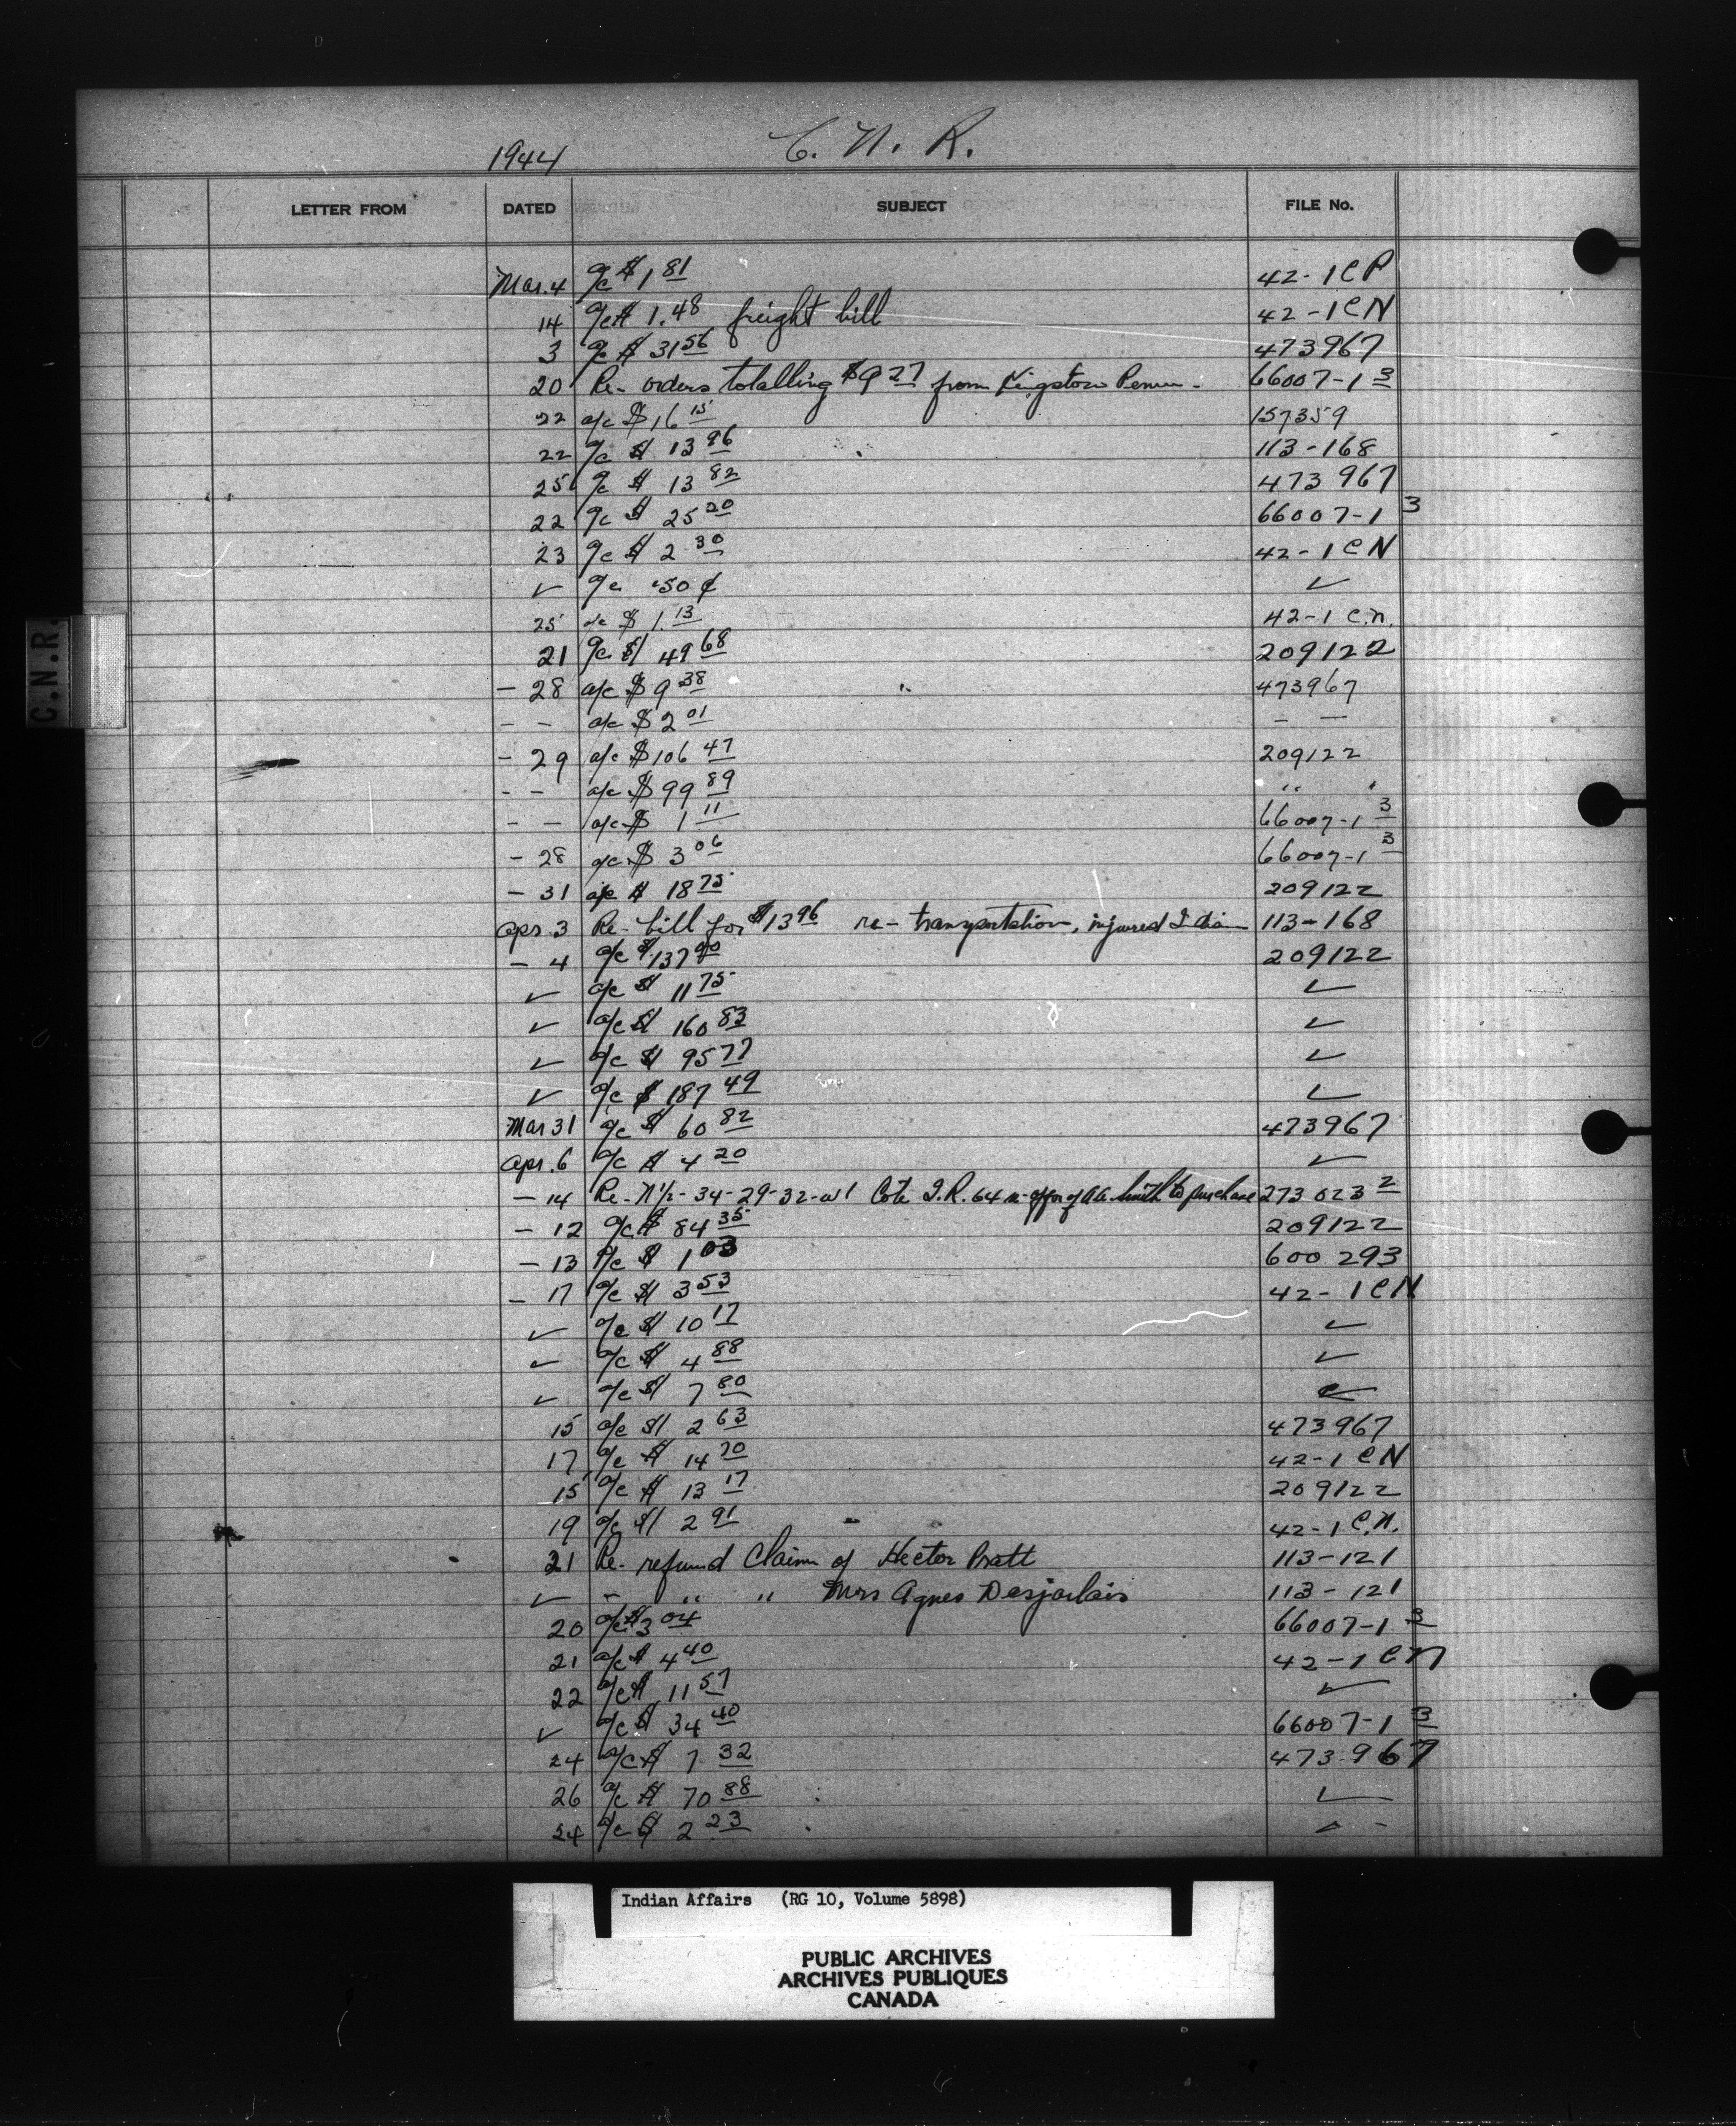 1944 C. N. R.
LETTER FROM DATED SUBJECT FILE No.
Mar. 4 a/c $ 1 81 42-1 CP
14 a/c $ 1.48 freight bill 42-1 CN
3 a/c $ 31 56 473967
20 Re- orders totalling $9 27 from Kingston Peniten- 66007-1 3
22 a/c $ 16 15 157359
22 a/c $ 13 96 113-168
25 a/c $ 13 82 473 967
22 a/c $ 25 20 66007-1 3
23 a/c $ 2 30 42-1 CN
✓ a/c .50 ¢ ✓
25 a/c $ 1.13 42-1 C.N.
21 a/c $ 49 68 209122
- 28 a/c $ 9 38 473967
- - a/c $ 2 01 - -
- 29 a/c $ 106 47 209122
- - a/c $ 99 89 " "
- - a/c $ 1 11 66007-1 3
- 28 a/c $ 3 06 66007-1 3
- 31 a/c $ 18 75 209122
Apr 3 Re- bill for $13 96 re- transportation, injured Indian 113-168
- 4 a/c $ 137 90 209122
✓ a/c $ 11 75 ✓
✓ a/c $ 160 83 ✓
✓ a/c $ 95 77 ✓
✓ a/c $ 187 49 ✓
Mar 31 a/c $ 60 82 473967
Apr. 6 a/c $ 4 20 ✓
- 14 Re- N½- 34-29-32-W1 Cote I.R. 64 re- offer of Smith to purchase 273 023 2
- 12 a/c $ 84 35 209122
- 13 a/c $ 1 03 600 293
- 17 a/c $ 3 53 42-1 CN
✓ a/c $ 10 17 ✓
✓ a/c $ 4 88 ✓
✓ a/c $ 7 80 ✓
15 a/c $ 2 63 473967
17 a/c $ 14 70 42-1 CN
15 a/c $ 13 17 209122
19 a/c $ 2 91 42-1 C.N.
21 Re- refund Claim of Hector Pratt 113-121
✓ - " " Mrs Agnes Desjarlais 113-121
20 a/c $ 3 04 66007-1 3
21 a/c $ 4 40 42-1 CN
22 a/c $ 11 57 ✓
✓ a/c $ 34 40 66007-1 3
24 a/c $ 7 32 473-967
26 a/c $ 70 88 ✓
24 a/c $ 2 23
C.N.R.
Indian Affairs (RG 10, Volume 5898)
PUBLIC ARCHIVES
ARCHIVES PUBLIQUES
CANADA